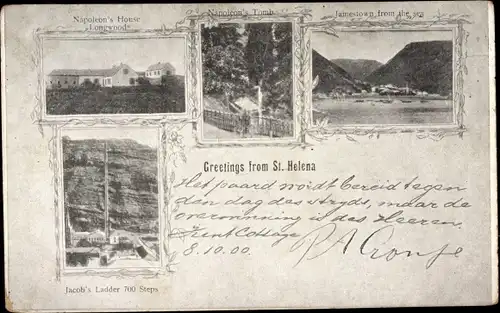 Napoleon's House
"Longwood"
Napoleon's Tomb
Jamestown from the sea
Greetings from St. Helena
Het paard wordt bereid tegen
den dag des stryds, maar de
overwinning is des Heeren.
Kent Cottage
8.10.00
P A Cronje
Jacob's Ladder 700 Steps